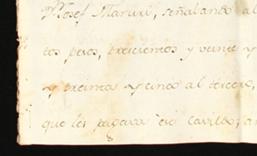 Josef Maruri, señalando al
tos pesos, trecientos y veinte y
y treinta y cinco al tercero,
que les pagara en